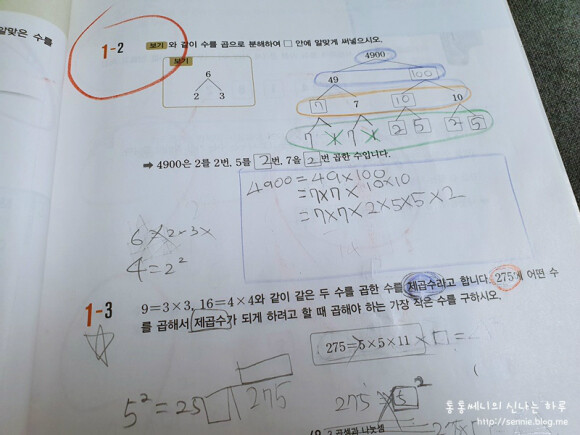 알맞은 수를
1-2
보기 와 같이 수를 곱으로 분해하여 □ 안에 알맞게 써넣으시오.
보기
6
2 3
4900
49 100
7 7 10 10
7 7 2 5 2 5
➡ 4900은 2를 2번, 5를 2번, 7을 2번 곱한 수입니다.
4900 = 49×100
= 7×7× 10×10
= 7×7×2×5×5×2
4=2²
1-3
9=3×3, 16=4×4와 같이 같은 두 수를 곱한 수를 제곱수라고 합니다. 275에 어떤 수
를 곱해서 제곱수가 되게 하려고 할 때 곱해야 하는 가장 작은 수를 구하시오.
275=5×5×11 ×□=
5²=25 □ 275
275 = 5²
통통쎄니의 신나는 하루
http://sennie.blog.me